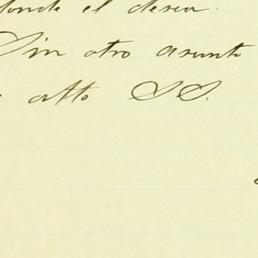 donde el desea.
Sin otro asunto
atto SS.